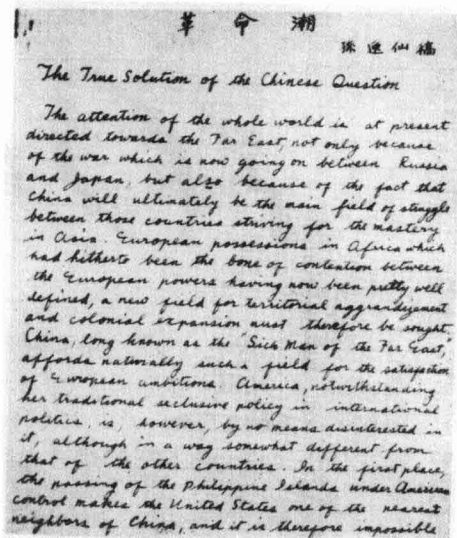 革命潮
孫逸仙稿
The True Solution of the Chinese Question
The attention of the whole world is at present
directed towards the Far East, not only because
of the war which is now going on between Russia
and Japan, but also because of the fact that
China will ultimately be the main field of struggle
between those countries striving for the mastery
in Asia. European possessions in Africa which
had hitherto been the bone of contention between
the European powers having now been pretty well
defined, a new field for territorial aggrandizement
and colonial expansion must therefore be sought.
China, long known as the "Sick Man of the Far East,"
affords naturally such a field for the satisfaction
of European ambitions. America, notwithstanding
her traditional seclusive policy in international
politics, is, however, by no means disinterested in
it, although in a way somewhat different from
that of the other countries. In the first place,
the passing of the Philippine Islands under American
control makes the United States one of the nearest
neighbors of China, and it is therefore impossible